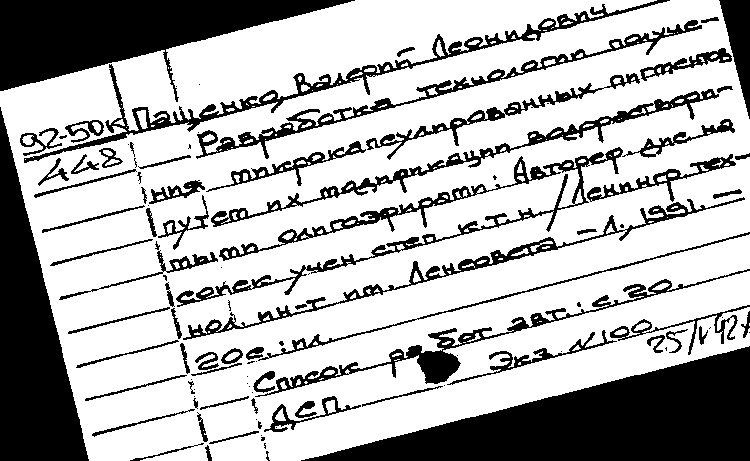 92-50к Пащенко, Валерий Леонидович.
448 Разработка технологии получе-
ния микрокапсулированных пигментов
путем их модификации водораствори-
мыми олигоэфирами: Автореф. дис на
соиск. учен степ. к.т.н. / Ленингр тех-
нол. ин-т им. Ленсовета. – Л., 1991. –
20с. : ил.
Список работ авт. : с. 20.
ДСП. Экз N100.